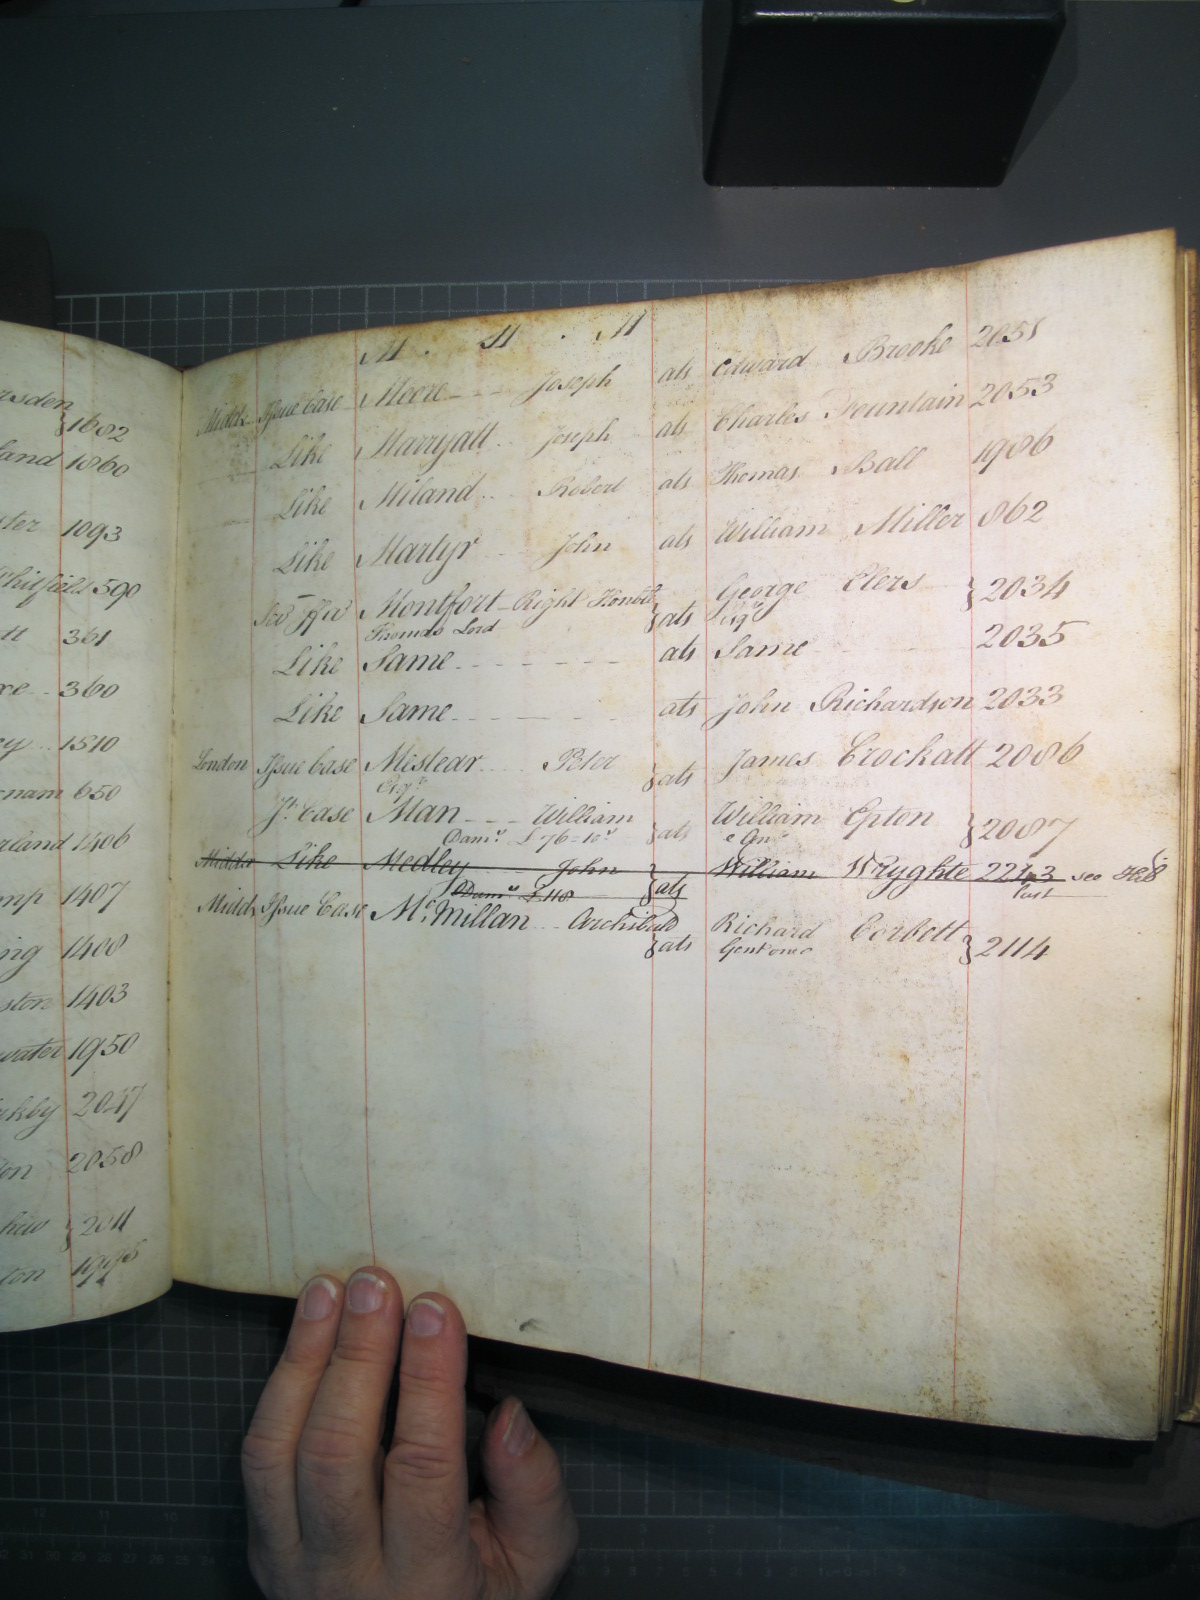 rsden
}1682
land 1860
ster 1093
Whitfield 590
tt 361
xe .. 360
ey .. 1510
nam 650
rland 1406
mp 1407
ing 1408
ston 1403
water 1950
nkby 2047
on 2058
hew } 2011
ton 1998
M . M . M
Middx Issue Case Moore Joseph ats Edward Brooke 2051
Like Marryatt Joseph ats Charles Fountain 2053
Like Miland Robert ats Thomas Ball 1986
Like Martyr John ats William Miller 862
Montfort Right Honble } ats George Clers } 2034
Thomas Lord Esqr
Like Same ats Same 2035
Like Same ats John Richardson 2033
London Issue Case Mistear Peter } ats James Crockatt 2086
Esqr
Case Man William } ats William Epton } 2087
Dams £76=10s
Middx Like Medley John } ats William Wryghte 2243 see
Dams £118 last
Middx Issue Case McMillan Archibald } ats Richard Corbett } 2114
Gent one